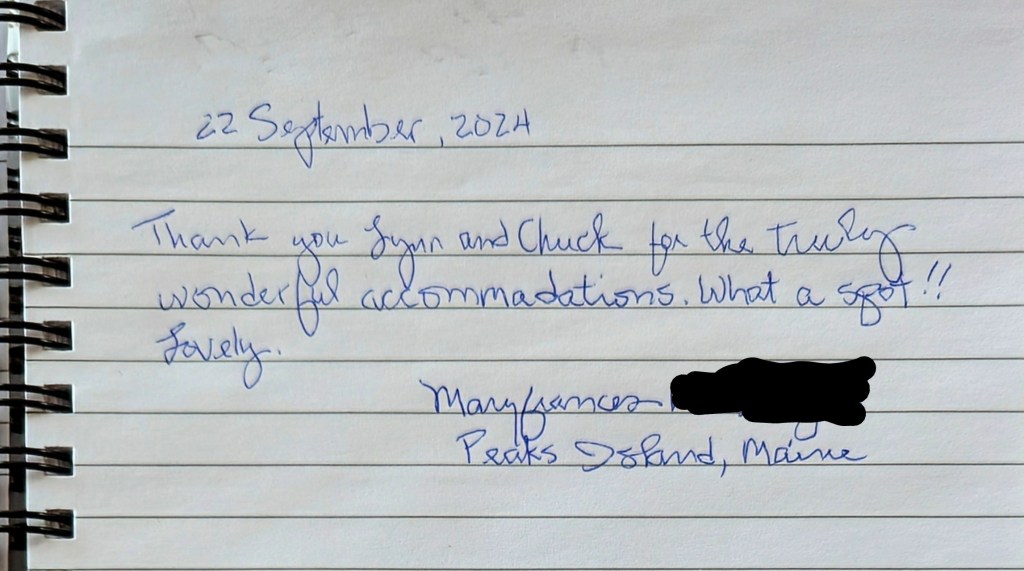 22 September, 2024
Thank you Lynn and Chuck for the truly
wonderful accommadations. What a spot!!
Lovely.
Maryfrances
Peaks Island, Maine